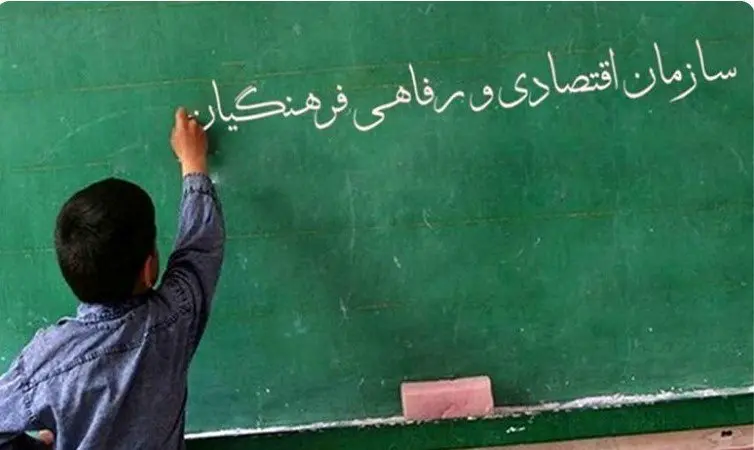 سازمان اقتصادی و رفاهی فرهنگیان